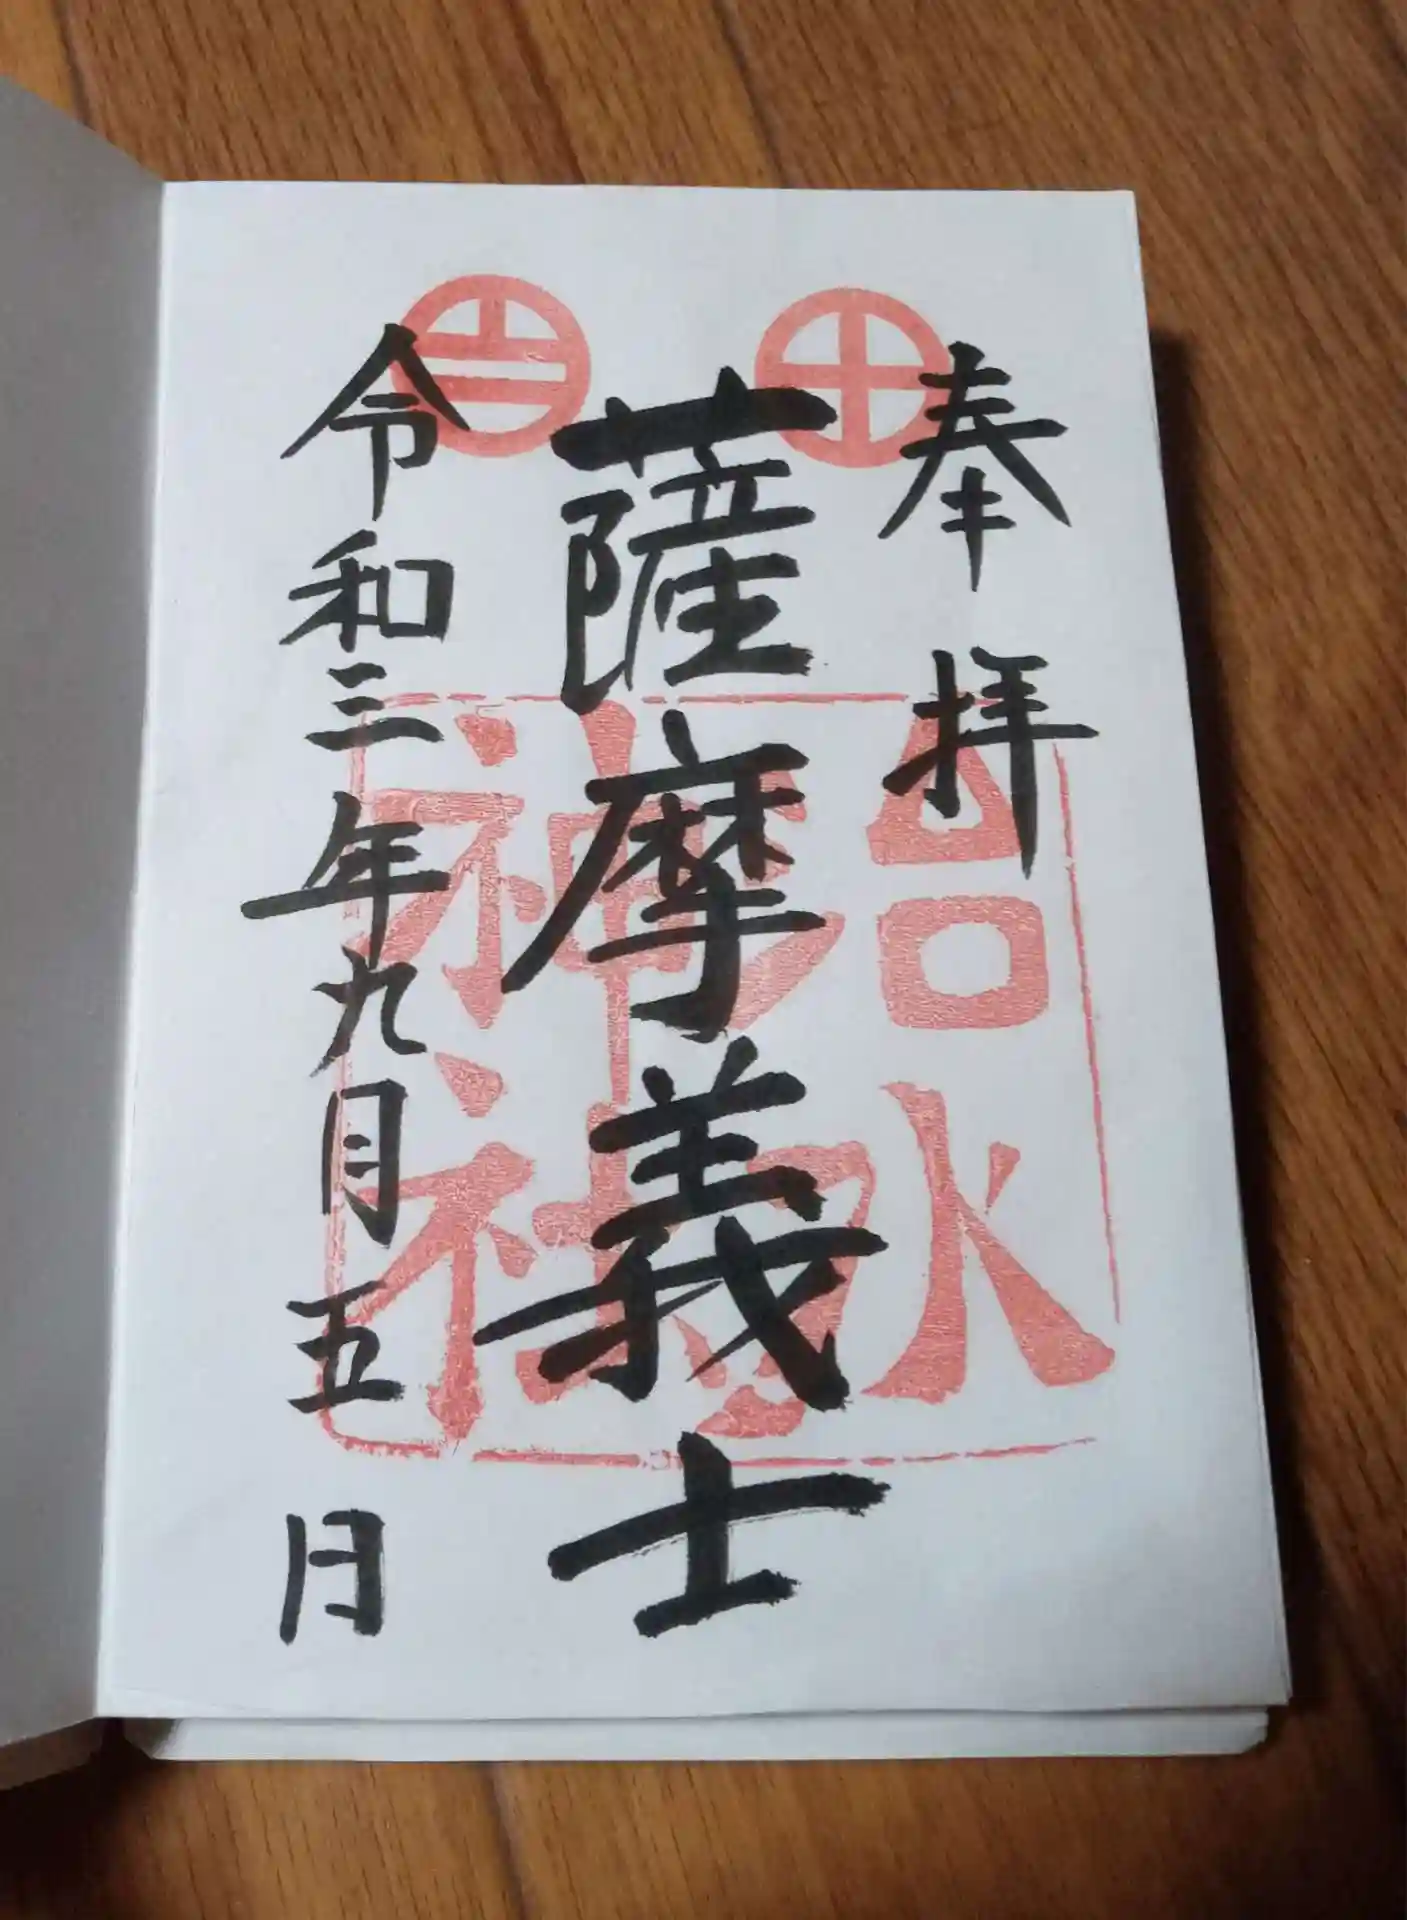 奉拝
薩摩義士
令和三年九月五日
治水神社